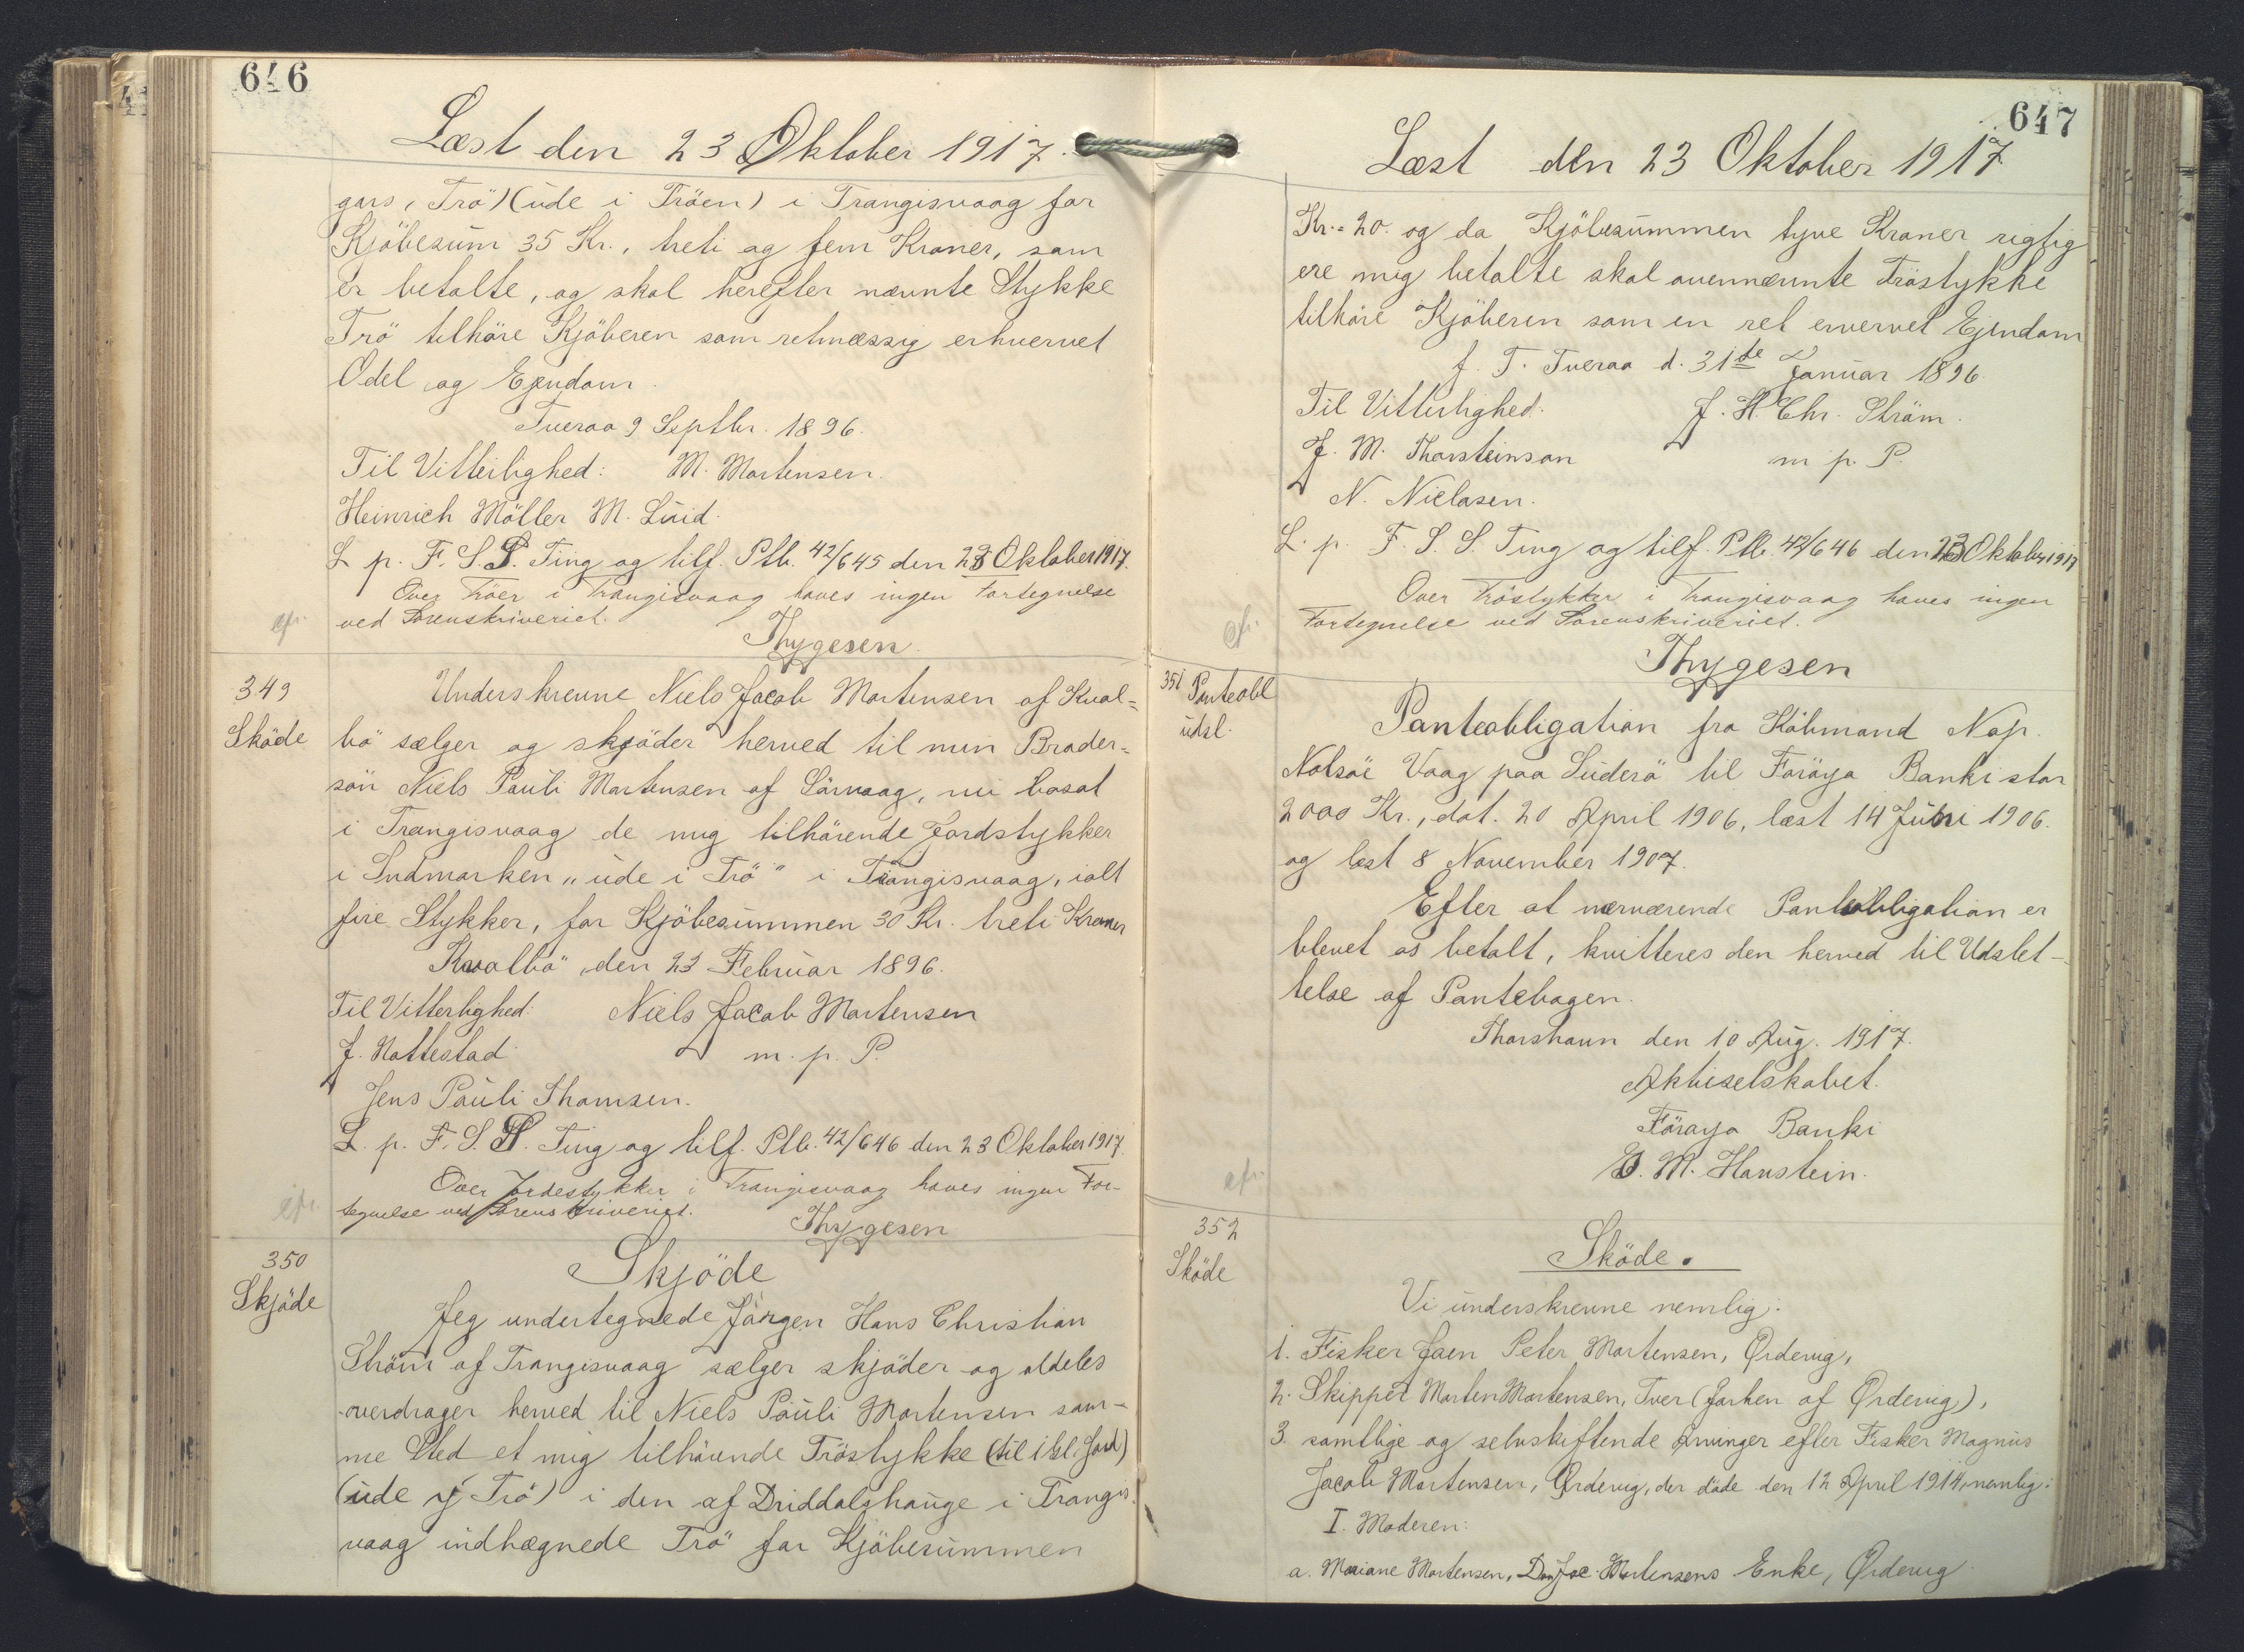 646
Læst den 23 Oktober 1917.
gars, Trö) (ude i Tröen) i Trangisvaag for
Kjöbesum 35 Kr., treti og fem Kroner, som
er betalte, og skal herefter nævnte Stykke
Trö tilhöre Kjöberen som retmæssig erhvervet
Odel og Ejendom.
Tveraa 9 Septbr. 1896.
Til Vitterlighed: M. Mortensen.
Heinrich Möller M. Luid.
L. p. F. S. S. Ting og tilf. Ptb. 42/645 den 23 Oktober 1917.
Over Tröer i Trangisvaag haves ingen Fortegnelse
ved Sorenskriveriet.
cfr.
Thygesen.
349
Sköde
Underskrevne Niels Jacob Mortensen af Kval=
bö sælger og skjöder herved til min Broder=
sön Niels Pauli Mortensen af Sörvaag, nu bosat
i Trangisvaag de mig tilhörende Jordstykker
i Indmarken "ude i Trö" i Trangisvaag, ialt
fire Stykker, for Kjöbesummen 30 Kr. treti Kroner
Kvalbö, den 23 Februar 1896.
Til Vitterlighed: Niels Jacob Mortensen
J. Nattestad m. p. P.
Jens Pauli Thomsen.
L. p. F. S. S. Ting og tilf. Ptb. 42/646 den 23 Oktober 1917.
Over Jordestykker i Trangisvaag haves ingen For-
tegnelse ved Sorenskriveriet.
cfr.
Thygesen
350
Skjöde
Skjöde
Jeg undertegnede Jörgen Hans Christian
Ström af Trangisvaag sælger skjöder og aldeles
overdrager herved til Niels Pauli Mortensen sam-
me Sted et mig tilhörende Tröstykke (til 1 Gl. Jord)
(ude i Trö) i den af Driddalshauge i Trangis
vaag indhægnede Trö for Kjöbesummen
647
Læst den 23 Oktober 1917
Kr. = 20. og da Kjöbesummen tyve Kroner rigtig
ere mig betalte skal ovennævnte Tröstykke
tilhöre Kjöberen som en ret ervervet Ejendom
f. T. Tveraa d. 31te Januar 1896.
Til Vitterlighed. J. H. Chr. Ström.
J. M. Thorsteinson m p. P.
N. Nielasen.
L. p. F. S. S. Ting og tilf. Ptb. 42/646 den 23 Oktober 1917
Over Tröstykker i Trangisvaag haves ingen
Fortegnelse ved Sorenskriveriet.
cfr.
Thygesen
351 Panteobl
udsl.
Panteobligation fra Köbmand Nap.
Nolsöe Vaag paa Suderö til Föroya Banki stor
2000 Kr., dat. 20 April 1906, læst 14 Juni 1906.
og læst 8 November 1907.
Efter at nærværende Panteobligation er
blevet os betalt, kvitteres den herved til Udslet-
telse af Pantebogen.
Thorshavn den 10 Aug. 1917.
Aktieselskabet.
Föroya Banki
E. M. Hanstein.
cfr.
352
Sköde
Sköde.
Vi underskrevne nemlig:
1. Fisker Joen Peter Mortensen, Ørdevig,
2. Skipper Morten Mortensen, Tver (Jarhen af Ørdevig),
3. samtlige og selvskiftende Arvinger efter Fisker Magnus
Jacob Mortensen, Ørdevig, der döde den 12 April 1914, nemlig:
I. Moderen:
a. Mariane Mortensen, Dan. Jac. Mortensens Enke, Ørdevig